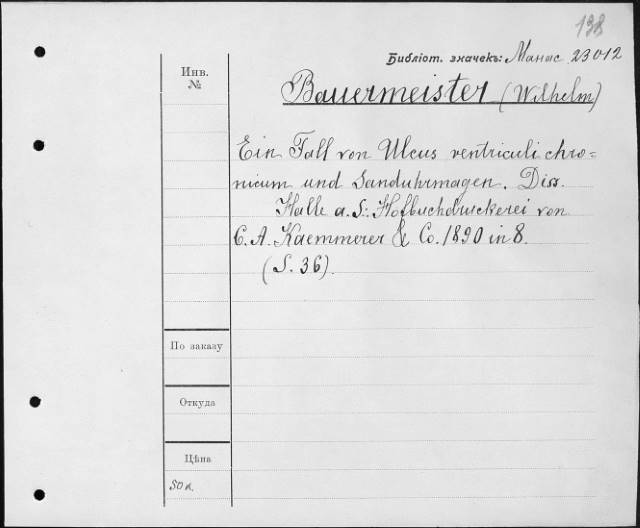 138
Библіот. значекъ: Манас 23012
Инв.
№
Bauermeister (Wilhelm)
Ein Fall von Ulcus ventriculi chro=
nicum und Sanduhrmagen. Diss.
Halle a. S.: Hofbuchdruckerei von
C. A. Kaemmerer & Co. 1890 in 8.
(S. 36).
По заказу
Откуда
Цѣна
50 к.